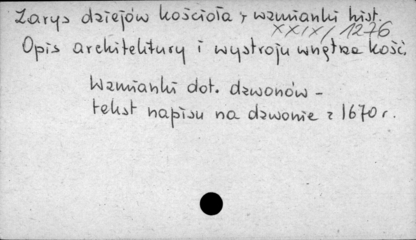 Zarys dziejów kościoła i wzmianki hist.
XXIX/1276
Opis architektury i wystroju wnętrza kość.
Wzmianki dot. dzwonów –
tekst napisu na dzwonie z 1670 r.